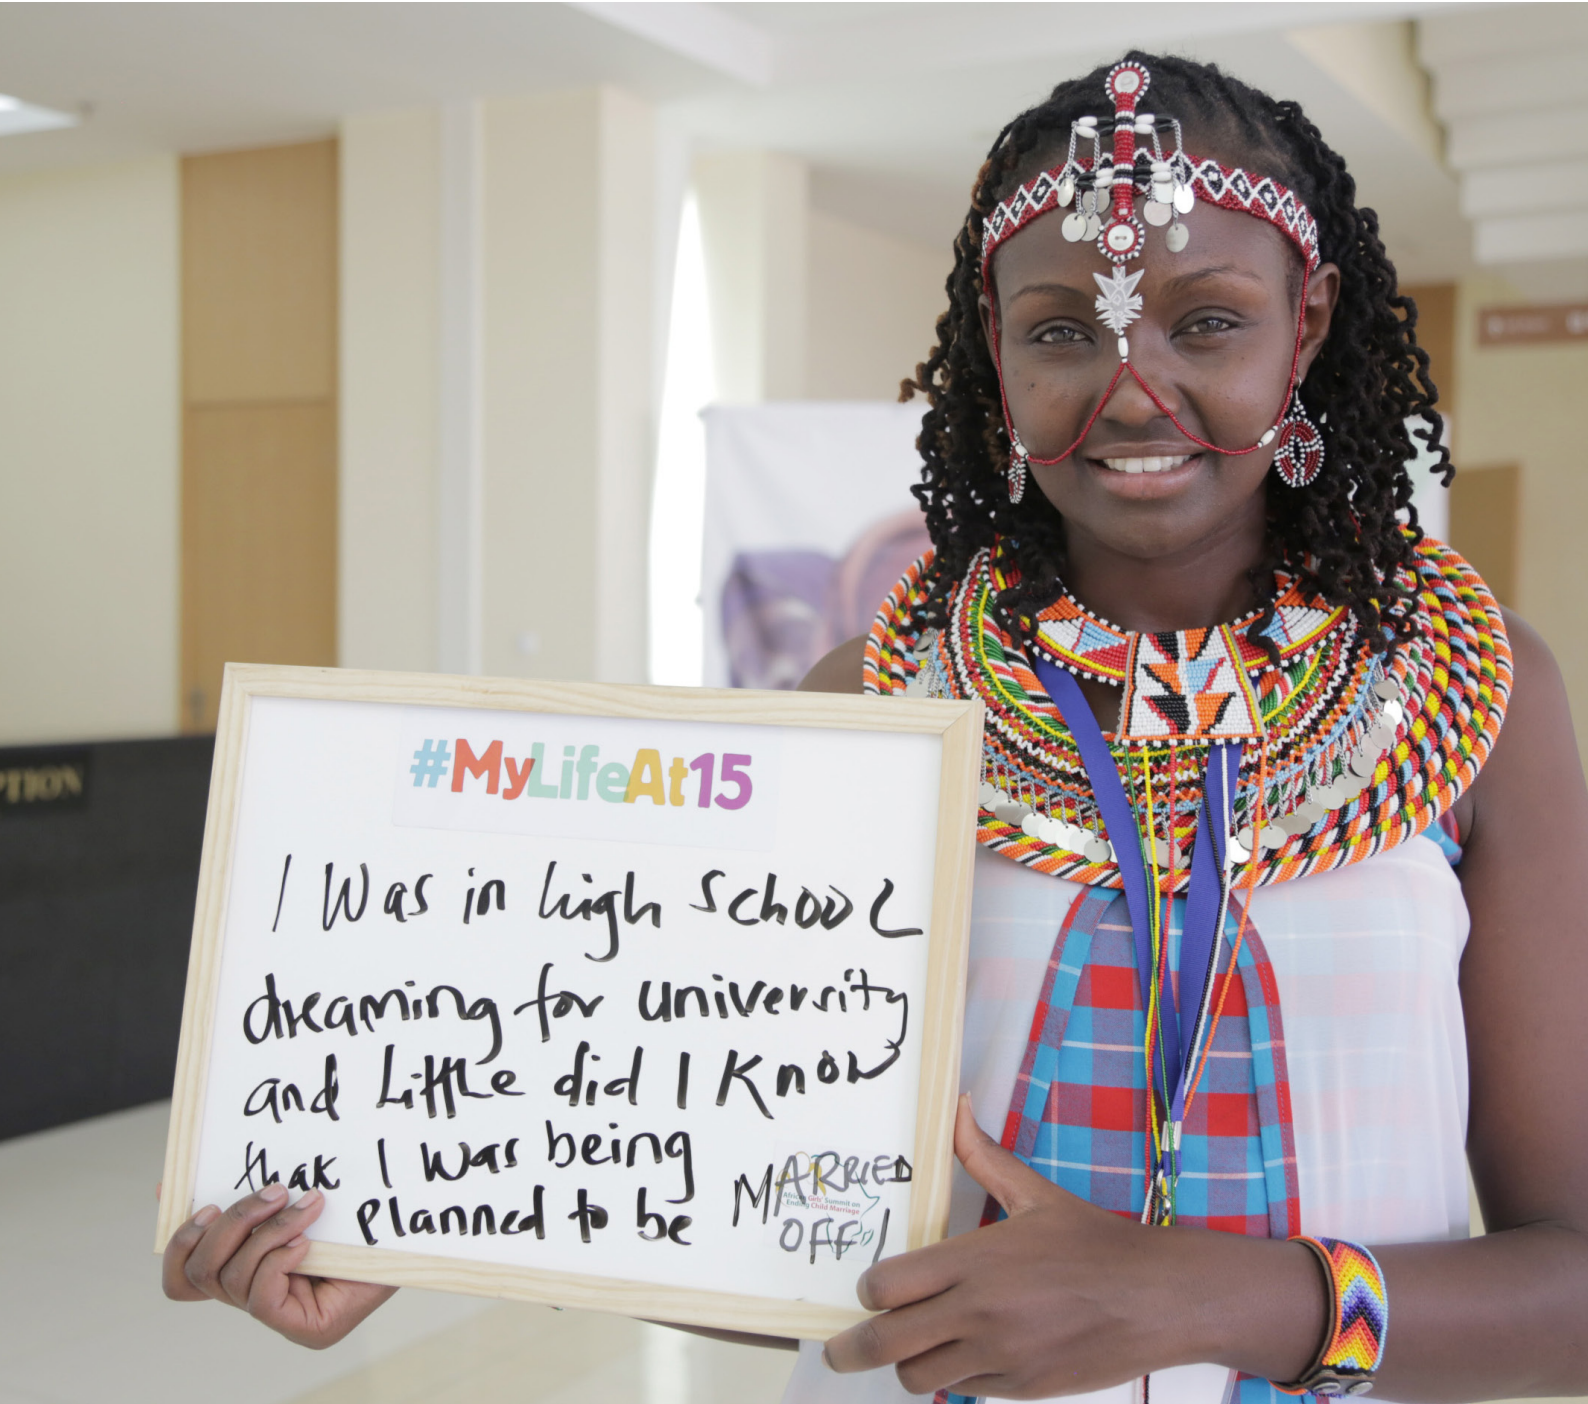 #MyLifeAt15
I Was in high School
dreaming for university
and Little did I Know
that I was being
planned to be MARRIED
OFF!
African Girls' Summit on
Ending Child Marriage
PTION